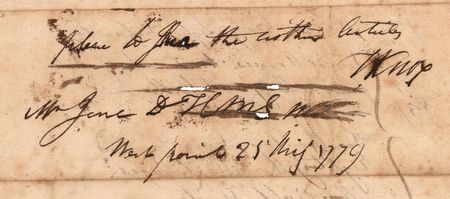 please to give the within Articles
HKnox
Mr Jone D
West point 25 Aug 1779